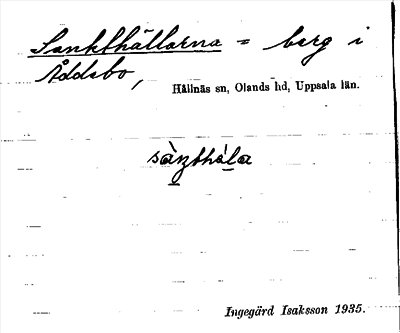 Sankthällarna = berg i
Åddebo,
Hållnäs sn, Olands hd, Uppsala län.
sàŋthá̀la
Ingegärd Isaksson 1935.